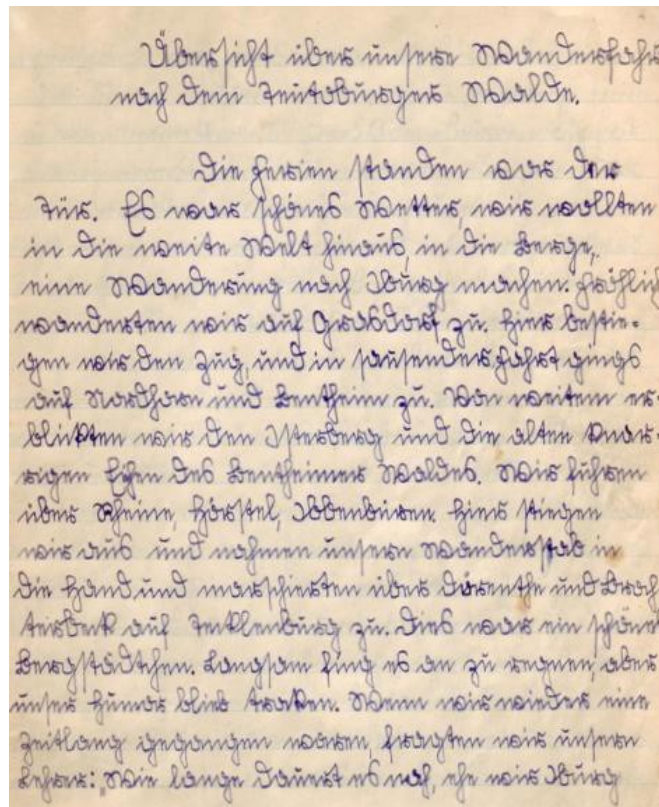 Übersicht über unsere Wanderfahr
nach dem Teutoburger Walde.
Die Ferien standen vor der
Tür. Es war schönes Wetter, wir wollten
in die weite Welt hinaus, in die Berge,
eine Wanderung nach Iburg machen. Fröhlich
wanderten wir auf Grasdorf zu. Hier bestie-
gen wir den Zug, und in sausender Fahrt gings
auf Nordhorn und Bentheim zu. Von weitem er-
blickten wir den Isterberg und die alten knor-
rigen Eichen des Bentheimer Waldes. Wir fuhren
über Rheine, Hörstel, Ibbenbüren. Hier stiegen
wir aus und nahmen unsern Wanderstab in
die Hand und marschierten über Dörenthe und Broch
terbeck auf Tecklenburg zu. Dies war ein schönes
Bergstädtchen. Langsam fing es an zu regnen, aber
unser Humor blieb trocken. Wenn wir wieder eine
Zeitlang gegangen waren, fragten wir unsern
Lehrer: „Wie lange dauert es noch, ehe wir Iburg